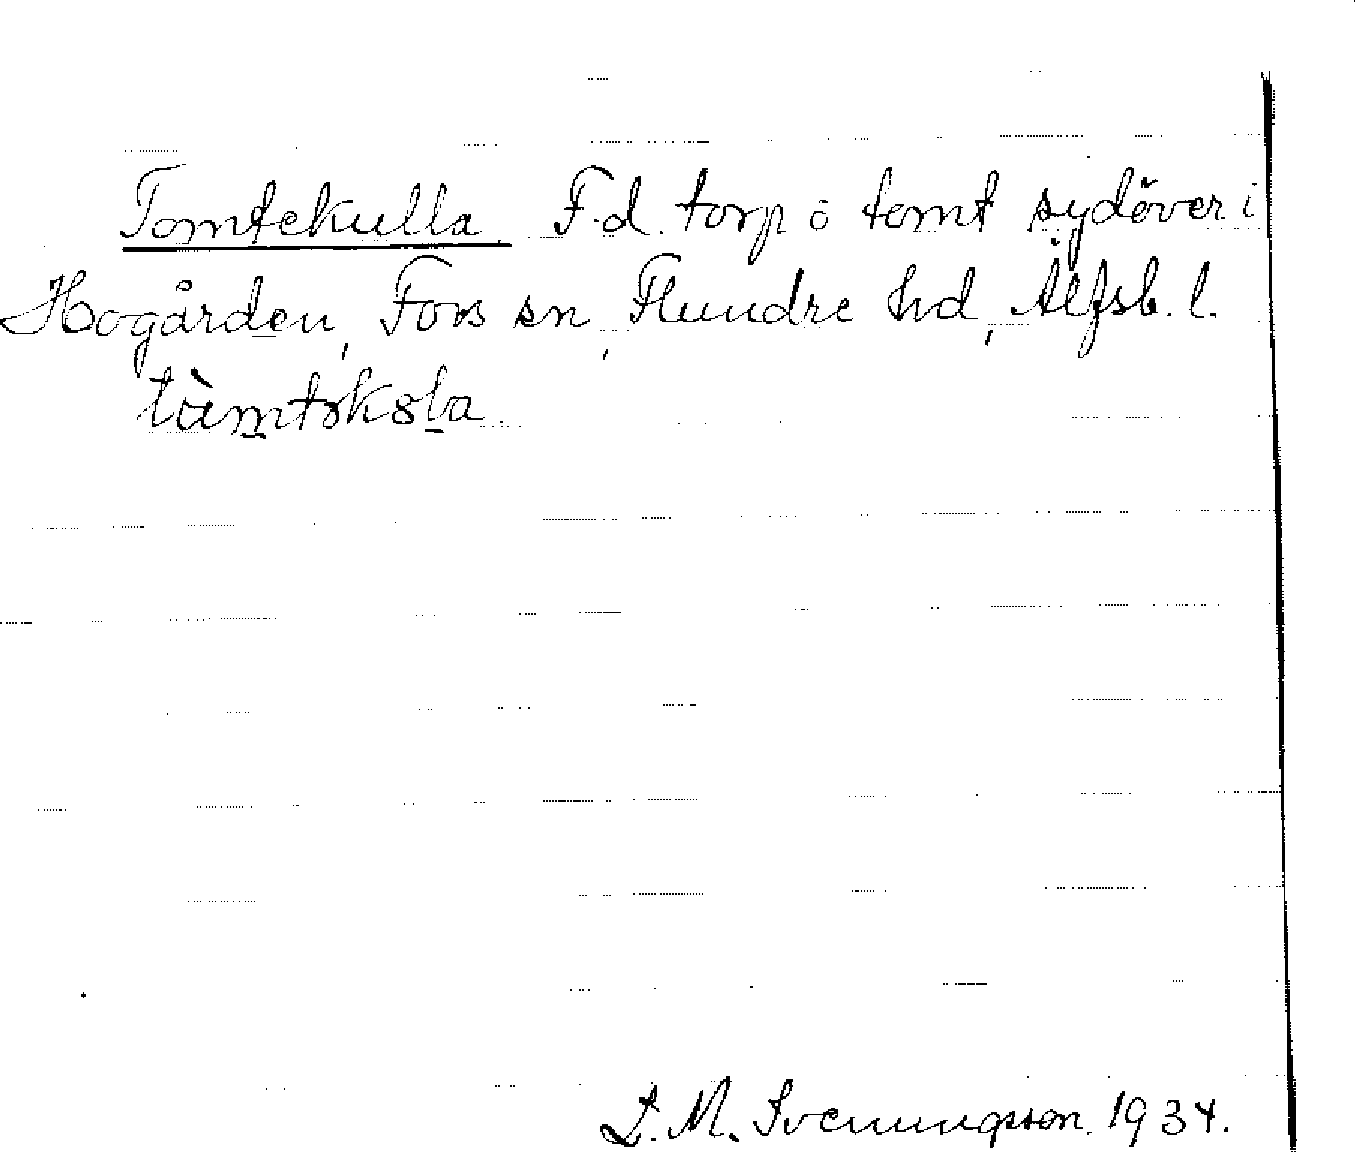 Tomtekulla. F.d. torp o tomt sydöver i
Hogården, Fors sn, Flundre hd, Älfsb. l.
L. M. Svenungsson. 1934.